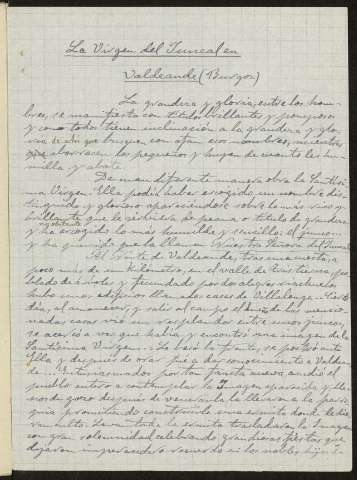 La Virgen del Juncal en
Valdeande (Burgos)
La grandeza y gloria, entre los hom-
bres, se manifiesta con títulos brillantes y pomposos
y como todos tienen inclinación a la grandeza y glo-
ria de ahí que busquen con afán esos nombres, mientras
que aborrecen los pequeños y huyen de cuanto les hu-
milla y abate.
De man diferente manera obra la Santísi-
ma Virgen. Ella podía haber escogido un nombre dis-
tinguido y glorioso apareciéndose sobre lo más rico y
brillante que le sirviera de peana o título de grandeza
y ha escogido lo más humilde y sencillo, el junco
y ha querido que la llamen Nuestra Señora del Juncal
Al Norte de Valdeande, tras una cuesta, a
poco más de un kilómetro, en el valle de tras tierra, po-
blado de árboles y fecundado por dos alegres riachuelos
hubo unos edificios llamados casas de Villalonga. Cierto
día, al amanecer, y salir al campo el de las mencio-
nadas casas vió un resplandor entre unos juncos,
se acercó a ver que había, y encontró una imagen de la
Santísima Virgen. Le besó la frente, se postró ante
Ella y después de orar fué a dar conocimiento a Valdean-
de. Entusiasmados por tan fausta nueva acudió el
pueblo entero a contemplar la Imagen aparecida y lle-
nos de gozo después de venerarla la llevaron a la parro-
quia prometiendo construirle una ermita donde le die-
ran culto. Levantada la ermita trasladaron la Imagen
con gran solemnidad celebrando grandiosas fiestas que
dejaron imperecedero recuerdo en los nobles hijos de